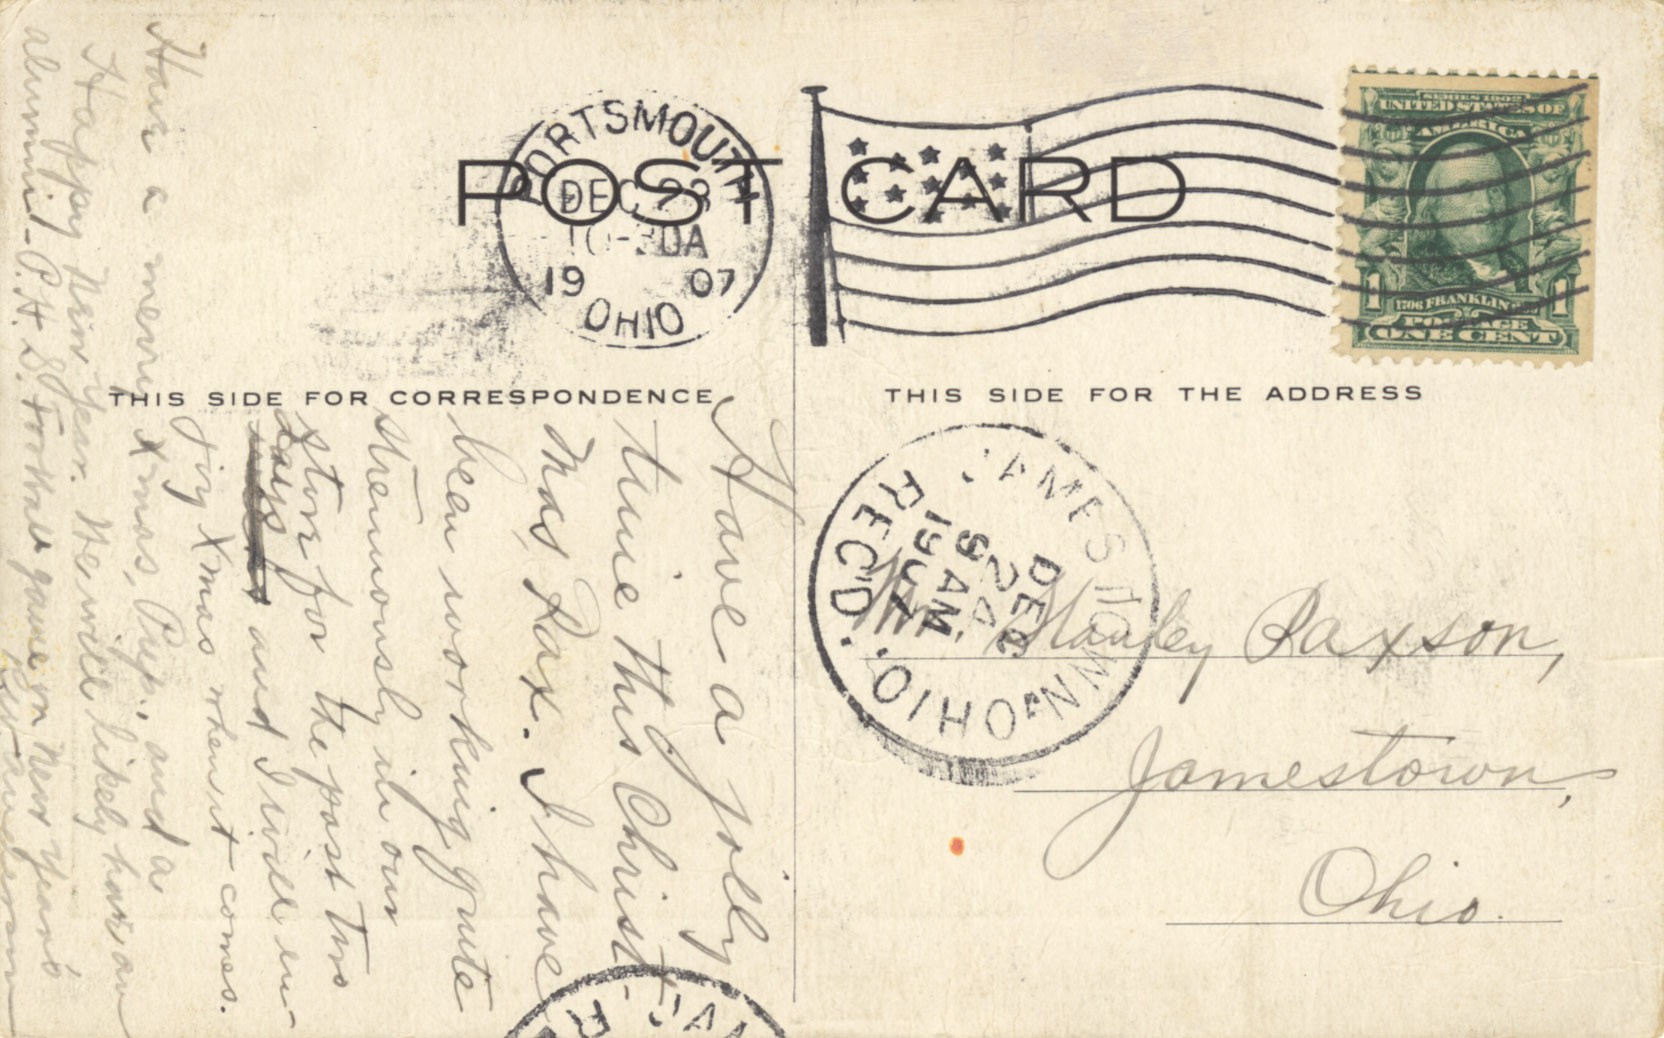 POST CARD
PORTSMOUTH
DEC 23
10-30A
1907
OHIO
SERIES 1902
UNITED STATES OF
AMERICA
1706 FRANKLIN
POSTAGE
1 1
ONE CENT
THIS SIDE FOR CORRESPONDENCE
THIS SIDE FOR THE ADDRESS
JAMESTOWN, OHIO.
DEC
24
9 AM
1907
REC'D.
Mr. Stanley Paxson,
Jamestown,
Ohio.
Have a jolly
time this Christ-
mas, Pax. I have
been working quite
strenuously in our
store for the past two
days and I will en-
joy Xmas when it comes.
Have a merry Xmas, and a
Happy New Year. We will likely have an
alumni-P.H.S. Football game on New Year's
JAM
R